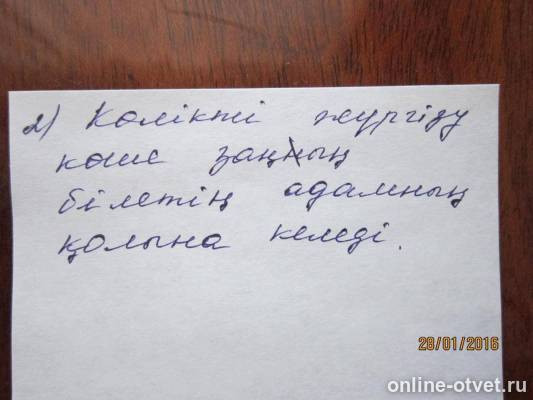 2) Көлікті жүргізу
көше заңның
білетің адамның
қолына келеді.
28/01/2016
online-otvet.ru